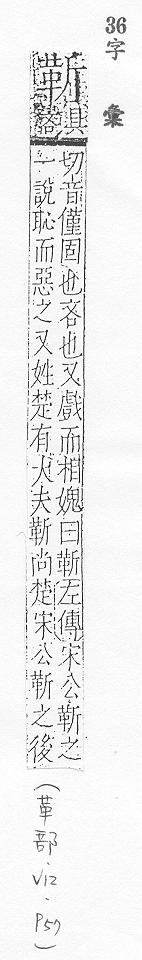 36字彙
靳具
切音僅固也吝也又戲而相媿曰靳左傳宋公靳之
一說恥而惡之又姓楚有大夫靳尚楚宋公靳之後
(革部.V12.P57)